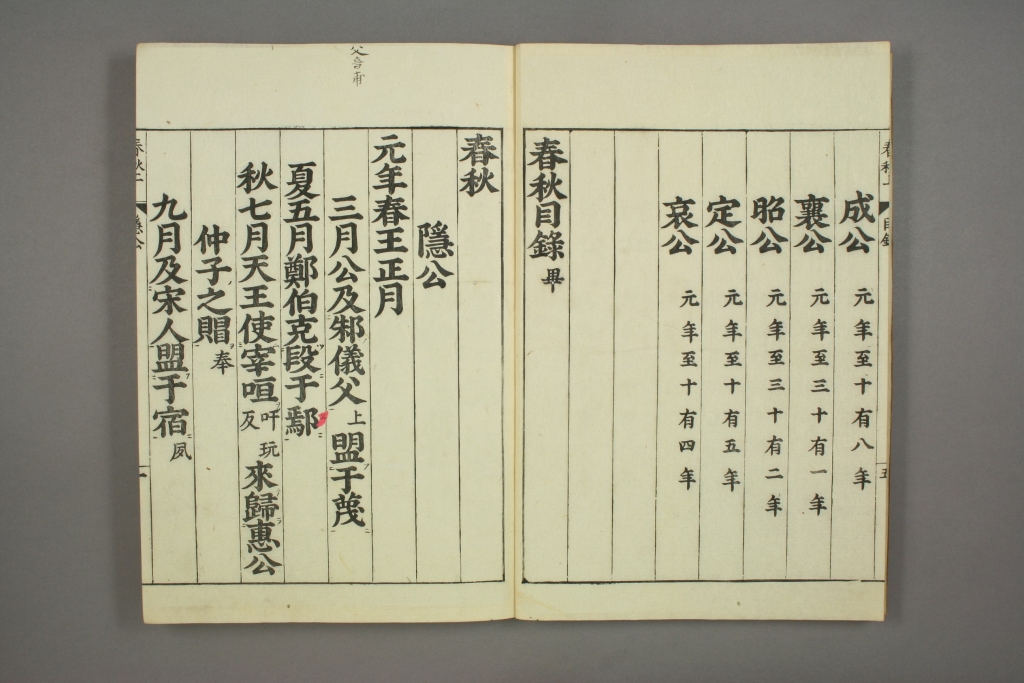 成公 元年至十有八年
襄公 元年至三十有一年
昭公 元年至三十有二年
定公 元年至十有五年
哀公 元年至十有四年
春秋目錄 畢
春秋
隱公
元年春王正月
三月公及邾儀父 上 盟于蔑
夏五月鄭伯克段于鄢
秋七月天王使宰咺 吁玩反 來歸惠公
仲子之賵 奉
九月及宋人盟于宿 夙
父音甫
隱公